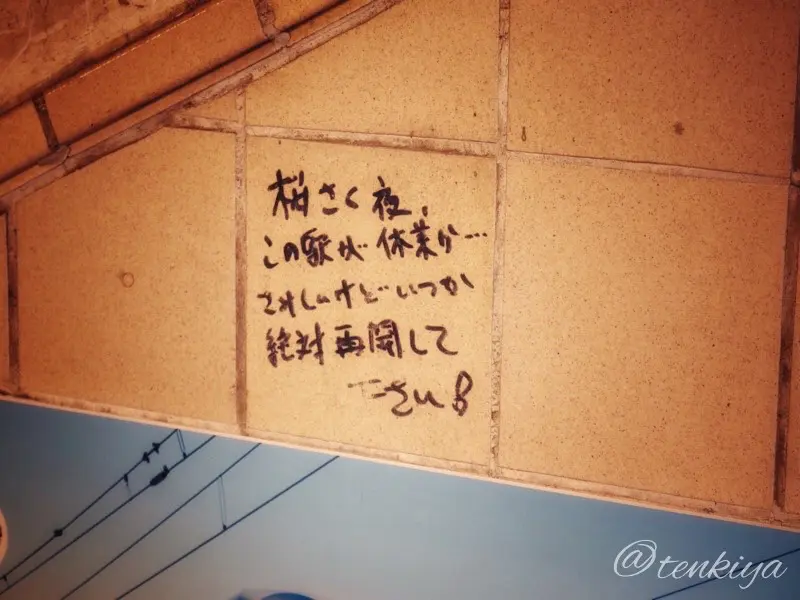 桜さく夜、
この駅が休業か…
さみしいけどいつか
絶対再開して
下さい!
@tenkiya